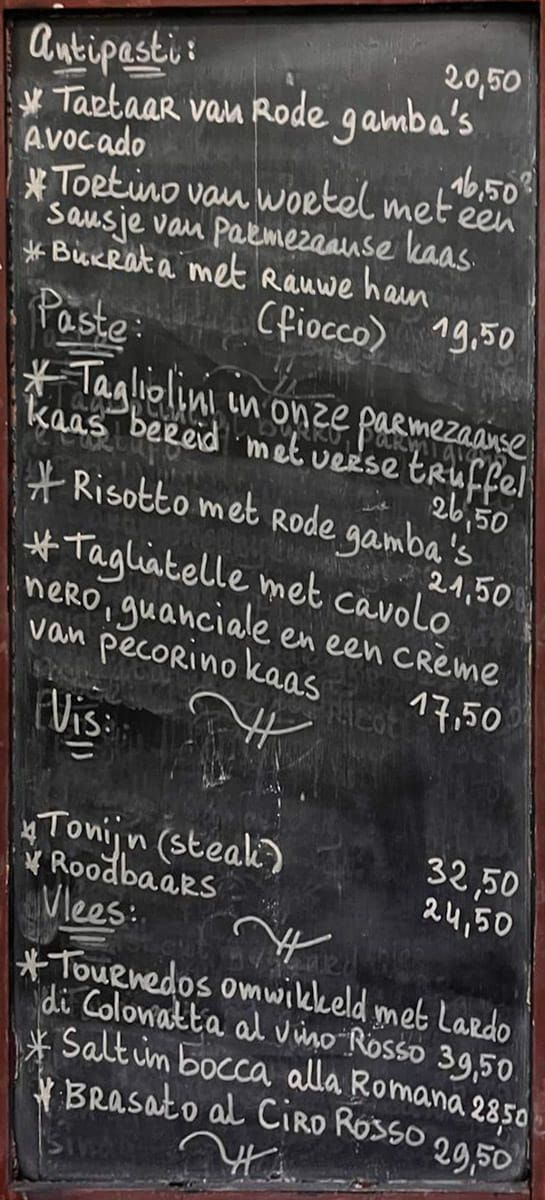 Antipasti:
20,50
* Tartaar van Rode gamba's
Avocado
16,50
* Tortino van wortel met een
sausje van parmezaanse kaas.
* Burrata met Rauwe ham
(fiocco) 19,50
Paste:
* Tagliolini in onze parmezaanse
kaas bereid met verse truffel
26,50
* Risotto met Rode gamba's
21,50
* Tagliatelle met cavolo
nero, guanciale en een crème
van pecorino kaas
17,50
Vis:
* Tonijn (steak) 32,50
* Roodbaars 24,50
Vlees:
* Tournedos omwikkeld met Lardo
di Colonatta al Vino Rosso 39,50
* Saltimbocca alla Romana 28,50
* Brasato al Ciro Rosso 29,50